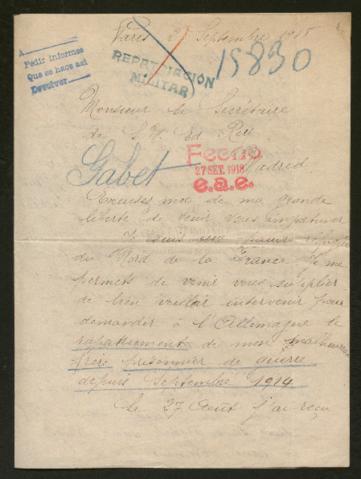 Paris 2 Septembre 1918
A
Pedir informes
Que se hace así
Devolver
REPATRIACIÓN
MILITAR
15830
Monsieur le Secrétaire
de S. M. Roi
Fecho
Madrid
27 SET. 1918
e.a.e.
Gabet
Excusez moi de ma grande
liberté de venir vous importuner
Je suis une
du Nord de la France Je me
permets de venir vous supplier
de bien vouloir intervenir pour
demander à l'Allemagne le
rapatriement de mon malheureux
frère prisonnier de guerre
depuis Septembre 1914
Le 27 Août j'ai reçu